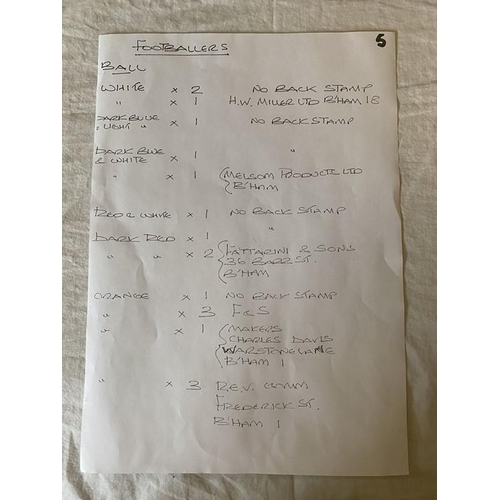 FOOTBALLERS 5
BALL
WHITE × 2 NO BACK STAMP
" × 1 H.W. MILLER LTD B'HAM 18
DARK BLUE
& LIGHT " × 1 NO BACK STAMP
DARK BLUE
& WHITE × 1 "
" × 1 MELSOM PRODUCTS LTD
B'HAM
RED & WHITE × 1 NO BACK STAMP
DARK RED × 1 "
" " × 2 FATTARINI & SONS
36 BARR ST.
B'HAM
ORANGE × 1 NO BACK STAMP
" × 3 F&S
" × 1 MAKERS
CHARLES DAVIS
WARSTONE LANE
B'HAM 1
" × 3 R.E.V.
FREDERICK ST.
B'HAM 1